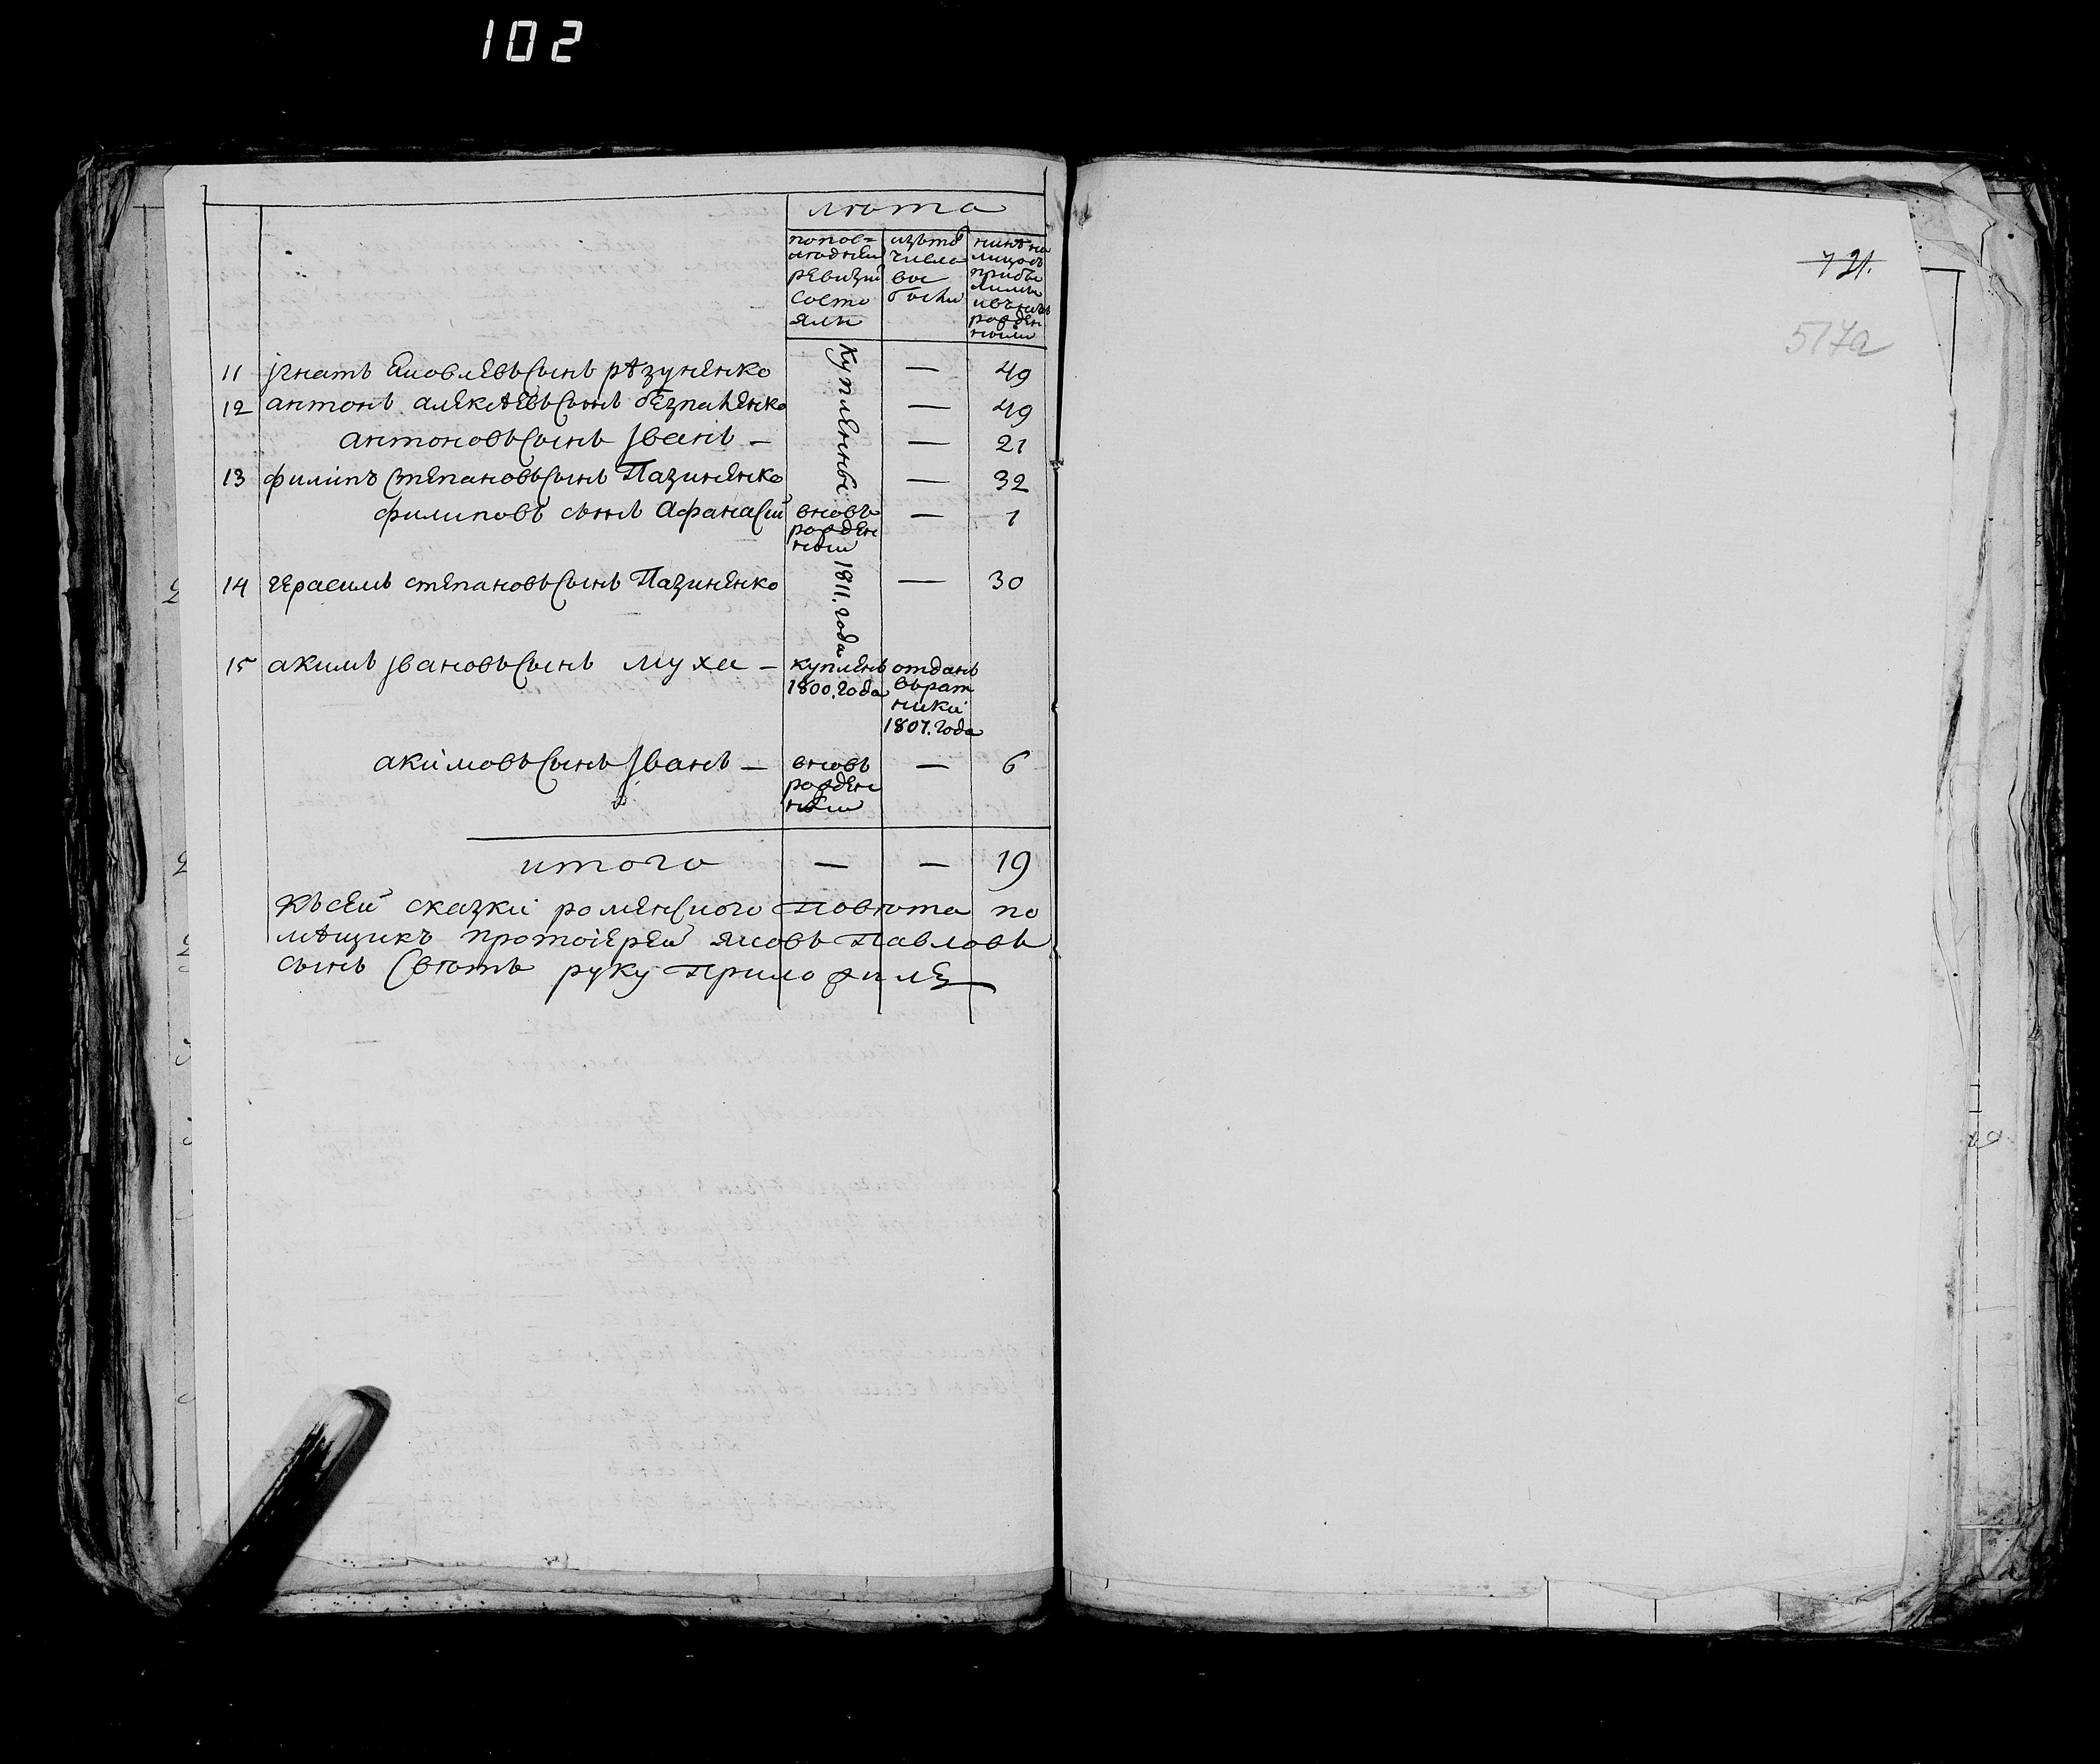 102
лѣта
попос=
лѣдней
ревизии
состо
яли
изъ то
числа
вы
были
нинѣ на
лицо съ
прибы
лими
и въновь
рожден
ними
11 Jгнатъ Яковлевъ сынъ рѣзуненко — 49
купленые 1811. года
12 антонъ алексѣевъ сынъ безпаленко — 49
антоновъ сынъ Jванъ — — 21
13 филипъ степановъ сынъ Пазиненко — 32
филиповъ сынъ Афанасий вновъ — 1
рожден
ный
14 герасимъ степановъ сынъ Пазиненко — 30
15 акимъ Jвановъ сынъ муха — купленъ отданъ
1800. года въ рат
ники
1807. года
акимовъ сынъ Jванъ — вновь — 6
рожден
ный
итого — — 19
Къ сей сказки роменского повѣта по
мѣщикъ протоіерей яковъ Павловъ
сынъ Свѣтъ руку приложилъ
721.
517а